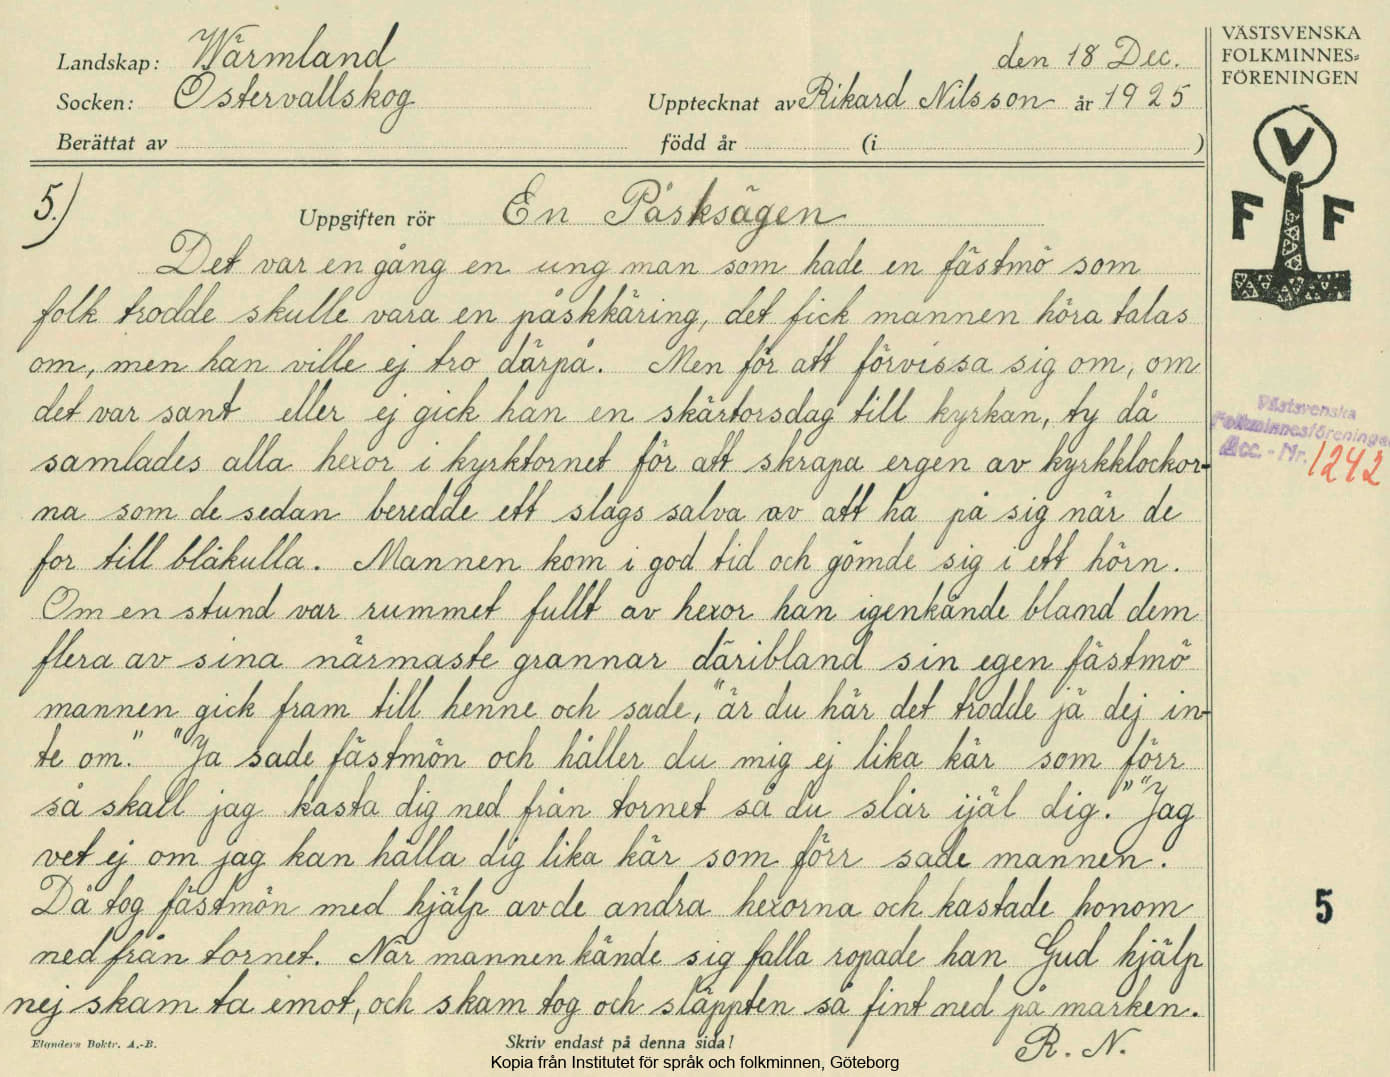 Landskap: Wärmland den 18 Dec.
Socken: Östervallskog Upptecknat av Rikard Nilsson år 1925
Berättat av född år (i )
VÄSTSVENSKA
FOLKMINNES=
FÖRENINGEN
V
F F
5.) Uppgiften rör En Påsksägen
Det var en gång en ung man som hade en fästmö som
folk trodde skulle vara en påskkäring, det fick mannen höra talas
om, men han ville ej tro därpå. Men för att förvissa sig om, om
det var sant eller ej gick han en skärtorsdag till kyrkan, ty då
samlades alla hexor i kyrktornet för att skrapa ergen av kyrkklockor-
na som de sedan beredde ett slags salva av att ha på sig när de
for till blåkulla. Mannen kom i god tid och gömde sig i ett hörn.
Om en stund var rummet fullt av hexor han igenkände bland dem
flera av sina närmaste grannar däribland sin egen fästmö
mannen gick fram till henne och sade, "är du här det trodde jä dej in-
te om." "Ja sade fästmön och håller du mig ej lika kär som förr
så skall jag kasta dig ned från tornet så du slår ijäl dig." "Jag
vet ej om jag kan hålla dig lika kär som förr sade mannen.
Då tog fästmön med hjälp av de andra hexorna och kastade honom
ned från tornet. När mannen kände sig falla ropade han Gud hjälp
nej skam ta emot, och skam tog och släppten så fint ned på marken.
R. N.
Västsvenska
Folkminnesföreningen
Acc. - Nr. 1242
5
Elanders Boktr. A.-B. Skriv endast på denna sida!
Kopia från Institutet för språk och folkminnen, Göteborg